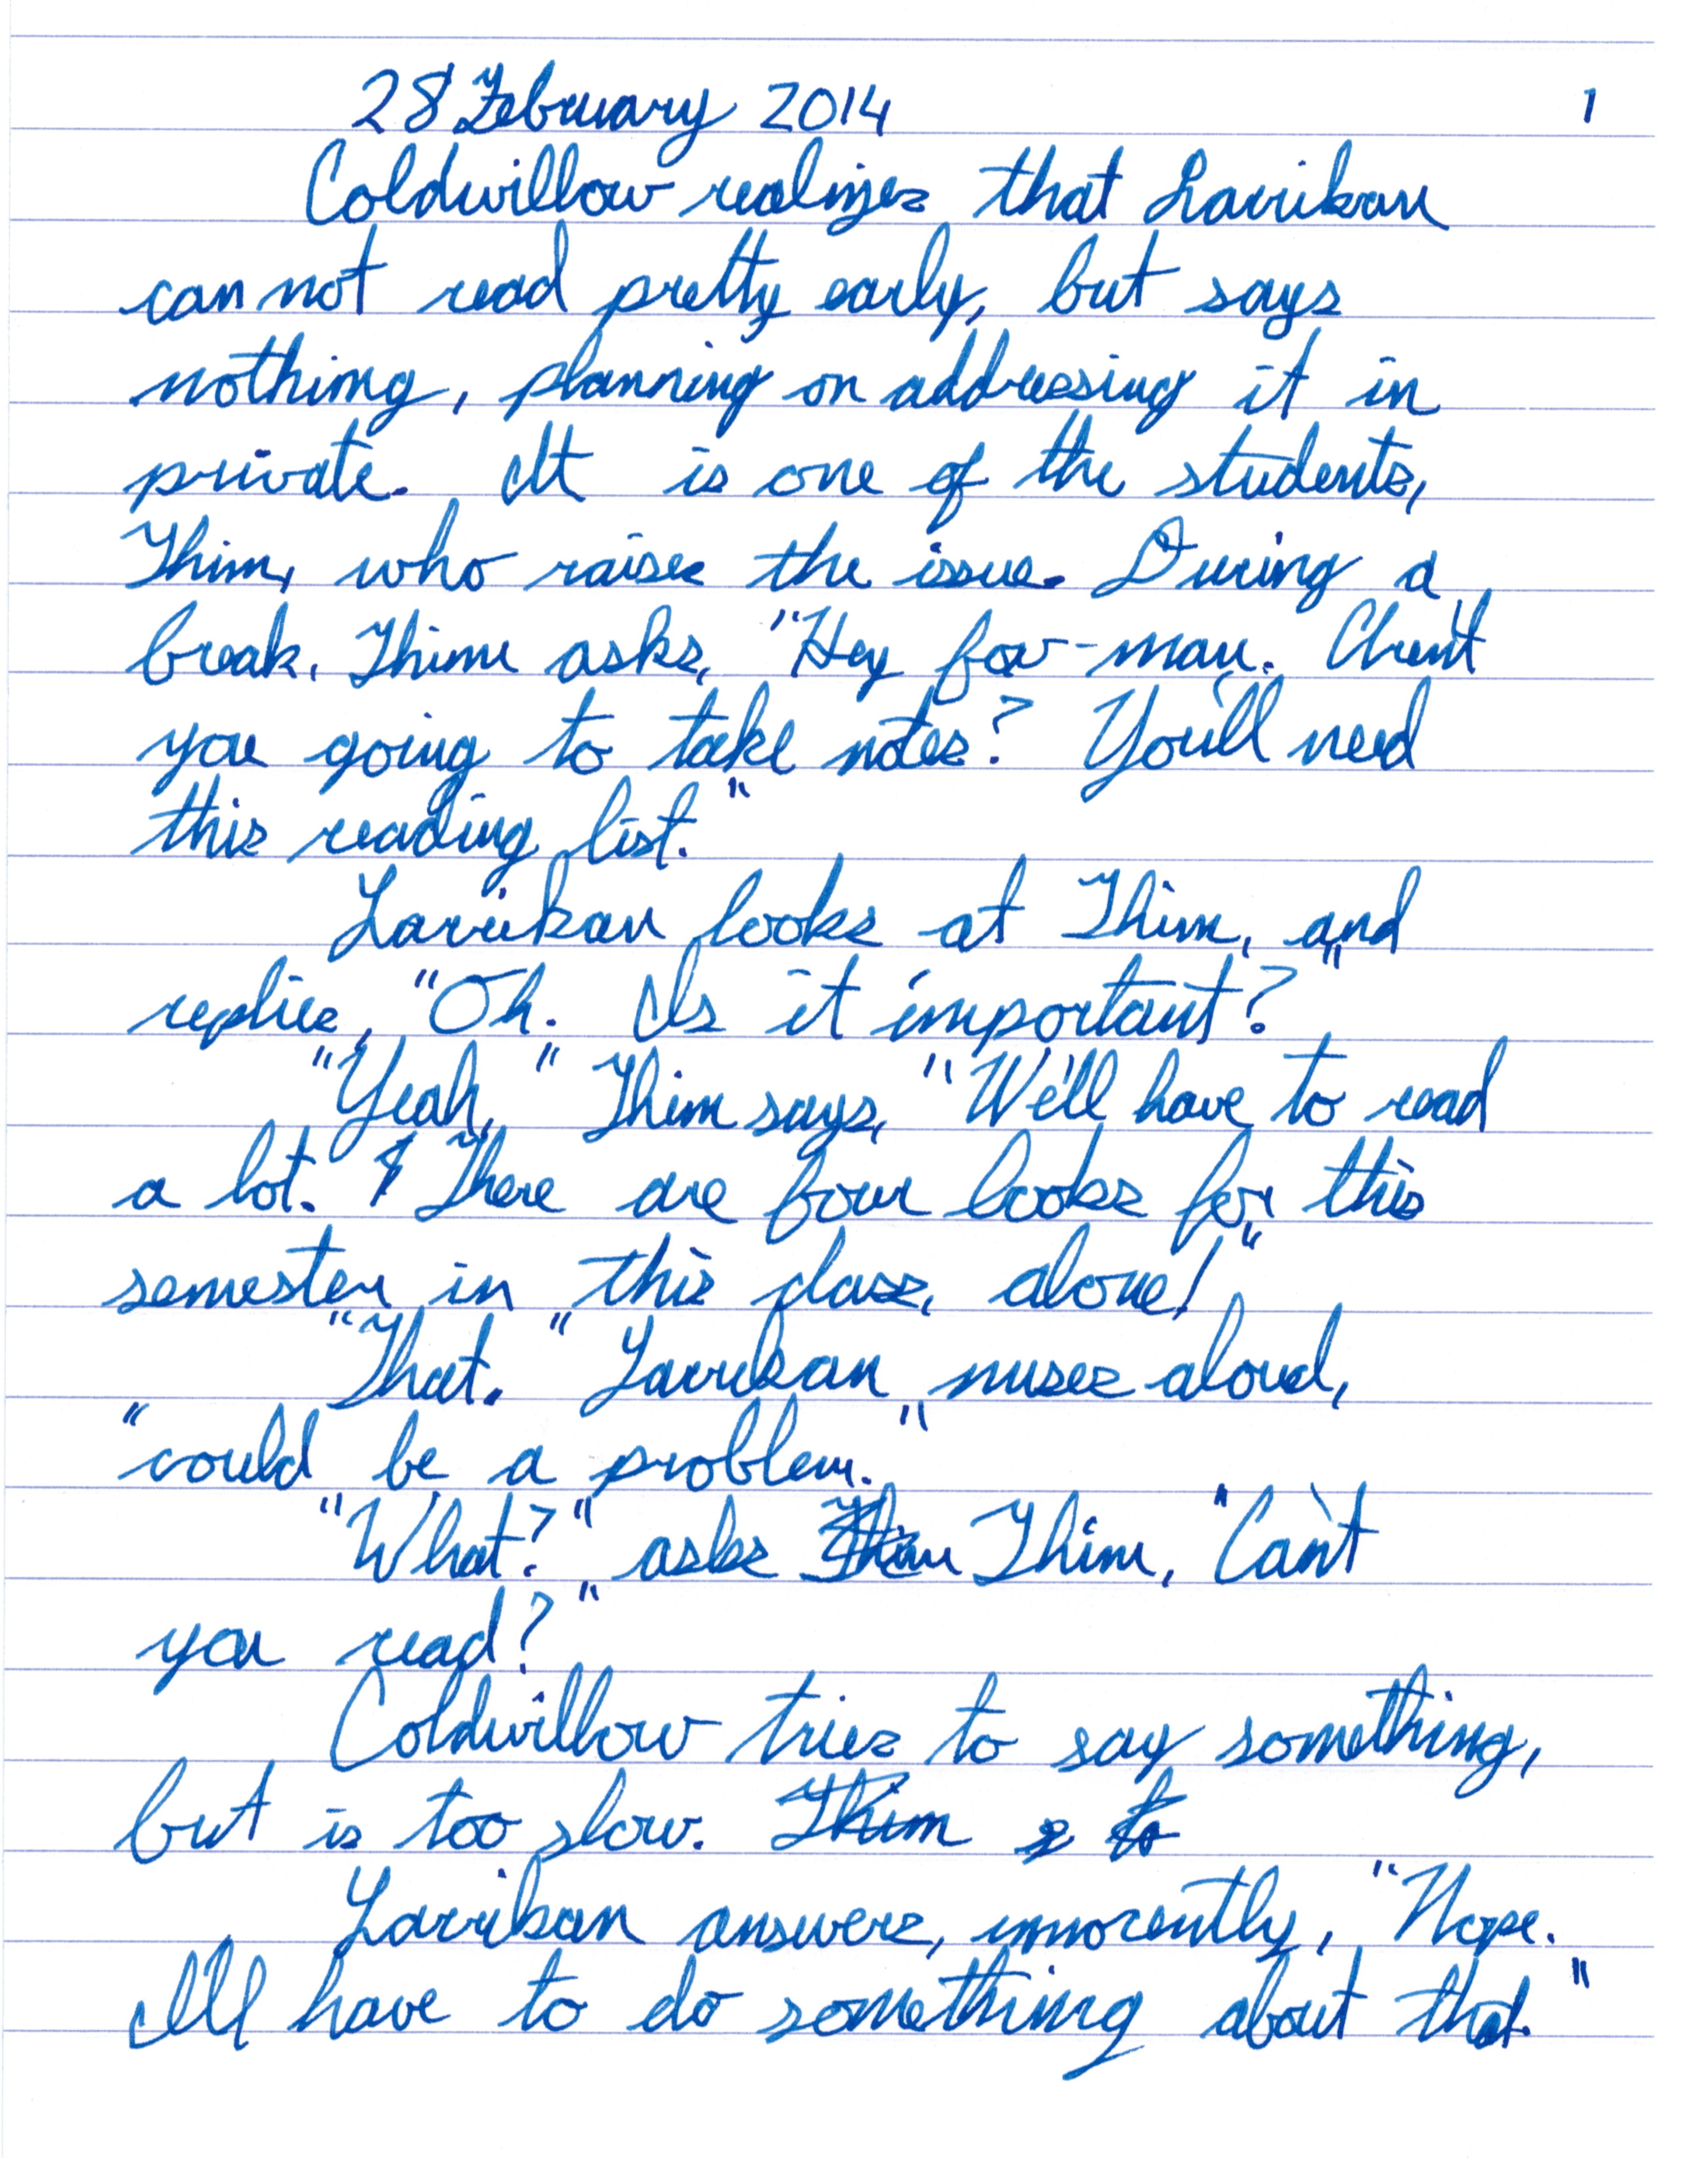 28 February 2014 1
Coldwillow realizes that Larrikan
can not read pretty early, but says
nothing, planning on addressing it in
private. It is one of the students,
Thim, who raises the issue. During a
break, Thim asks, "Hey fox-man. Aren't
you going to take notes? You'll need
this reading list."
Larrikan looks at Thim, and
replies, "Oh. Is it important?"
"Yeah," Thim says, "We'll have to read
a lot. There are four books for this
semester in this class, alone!"
"That," Larrikan muses aloud,
"could be a problem."
"What?" asks Thim, "Can't
you read?"
Coldwillow tries to say something,
but is too slow. Thim s to
Larrikan answers, innocently, "Nope.
I'll have to do something about that."